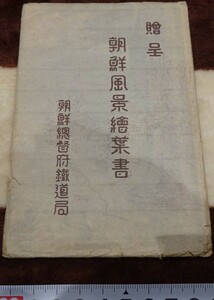 贈呈
朝鮮風景繪葉書
朝鮮總督府鐵道局